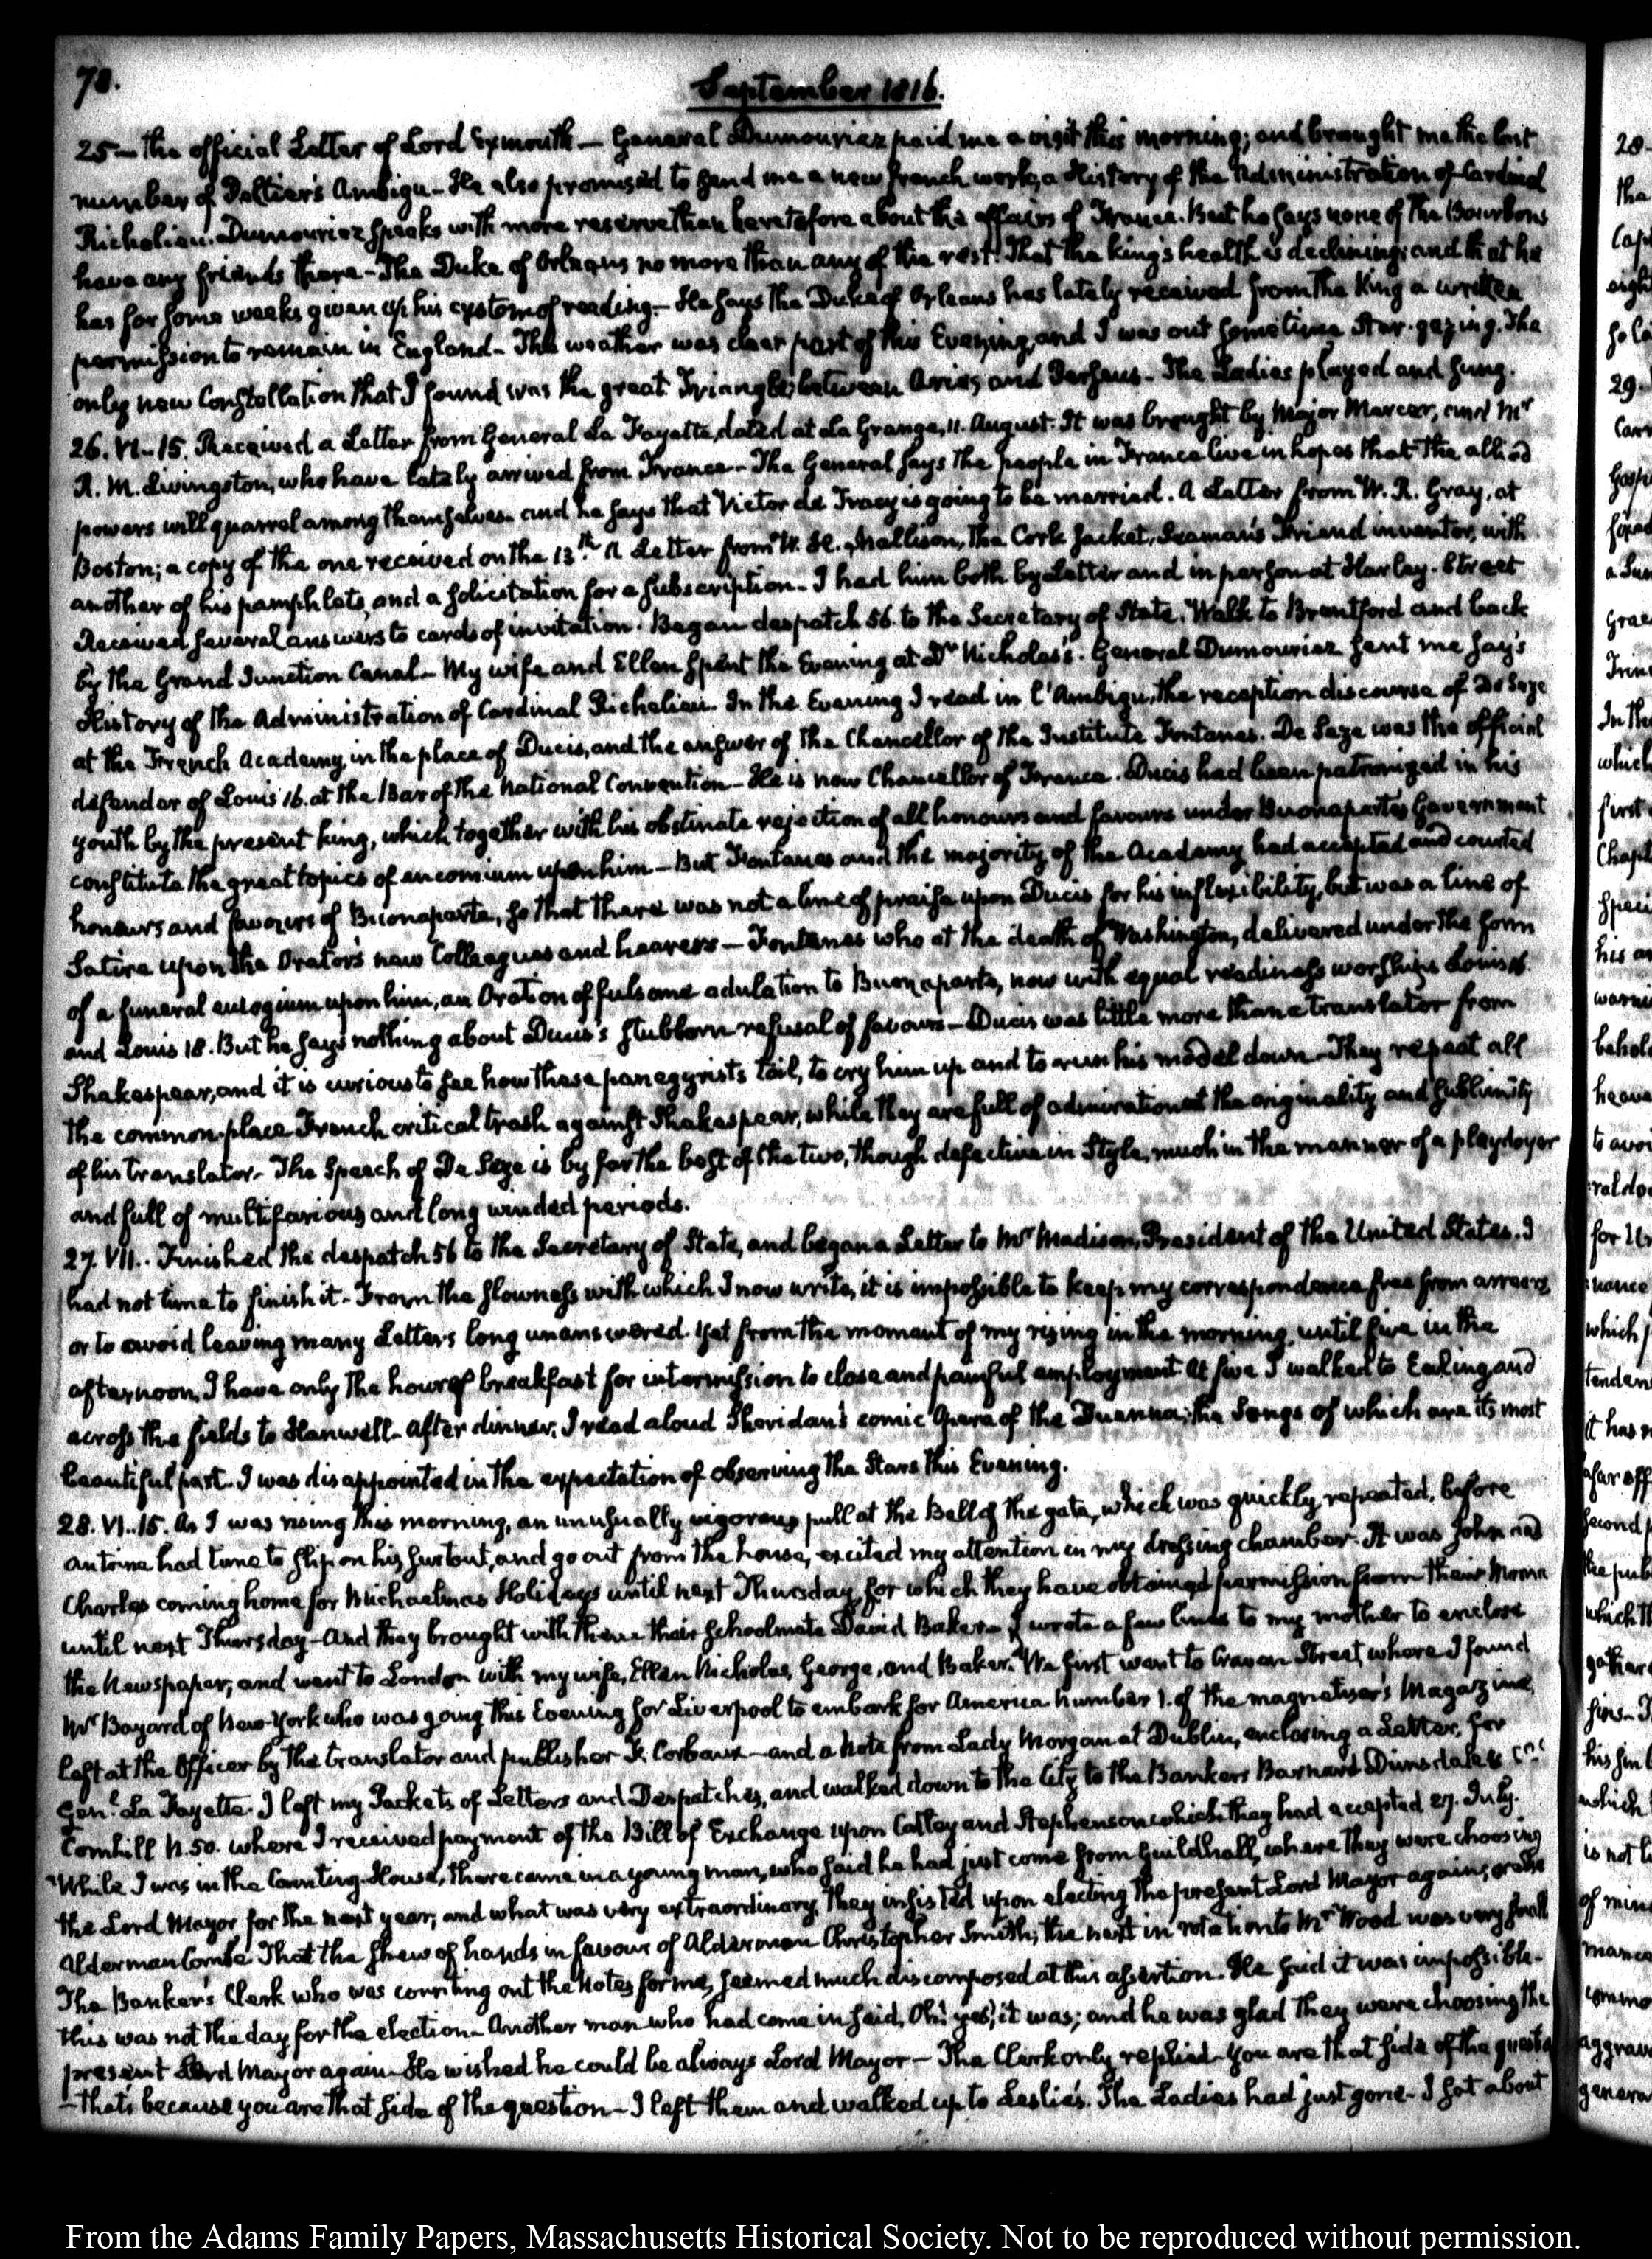 78.
September 1816.
25 — the official Letter of Lord Exmouth — General Dumouriez paid me a visit this morning; and brought me the last
number of Peltier's Ambigu — He also promised to send me a new french work, a History of the Administration of Cardinal
Richelieu. Dumouriez speaks with more reserve than heretofore about the affairs of France. But he says none of the Bourbons
have any friends there — The Duke of Orleans no more than any of the rest. That the king's health is declining; and that he
has for some weeks given up his custom of reading. — He says the Duke of Orleans has lately received from the King a written
permission to remain in England — The weather was clear part of this Evening, and I was out sometime Star-gazing. The
only new Constellation that I found was the great Triangle; between Aries and Perseus — The Ladies played and sung.
26. VI-15. Received a Letter from General La Fayette, dated at La Grange, 11. August. It was brought by Major Mercer, and Mr
R. M. Livingston, who have lately arrived from France — The General says the people in France live in hopes that the allied
powers will quarrel among themselves and he says that Victor de Tracy is going to be married. A Letter from W. R. Gray, at
Boston; a copy of the one received on the 13th. A Letter from W. H. Mallison, the Cork Jacket, Seaman's Friend inventor, with
another of his pamphlets, and a solicitation for a subscription — I had him both by Letter and in person at Harley-Street
Received several answers to cards of invitation. Began despatch 56. to the Secretary of State. Walk to Brentford and back
by the Grand Junction Canal — My wife and Ellen spent the Evening at Dr Nicholas's. General Dumouriez sent me Jay's
History of the Administration of Cardinal Richelieu. In the Evening I read in l'Ambigu, the reception discourse of De Seze
at the French Academy, in the place of Ducis, and the answer of the Chancellor of the Institute Fontanes. De Seze was the official
defender of Louis 16. at the Bar of the National Convention — He is now Chancellor of France. Ducis had been patronized in his
youth by the present king, which together with his obstinate rejection of all honours and favours under Buonaparte's Government
constitute the great topics of encomium upon him — But Fontanes and the majority of the Academy had accepted and courted
honours and favours of Buonaparte, so that there was not a line of praise upon Ducis for his inflexibility, but was a line of
Satire upon the Orator's new Colleagues and hearers — Fontanes who at the death of Washington, delivered under the form
of a funeral eulogium upon him, an Oration of fulsome adulation to Buonaparte, now with equal readiness worships Louis 16.
and Louis 18. But he says nothing about Ducis's stubborn refusal of favours — Ducis was little more than a translator from
Shakespear, and it is curious to see how these panegyrists toil, to cry him up and to run his model down — They repeat all
the common-place French critical trash against Shakespear, while they are full of admiration at the originality and sublimity
of his translator — The Speech of De Seze is by far the best of the two, though defective in Style, much in the manner of a playdoyer
and full of multifarious and long winded periods.
27. VII.. Finished the despatch 56 to the Secretary of State, and began a Letter to Mr Madison, President of the United States. I
had not time to finish it — From the slowness with which I now write, it is impossible to keep my correspondence free from arrears,
or to avoid leaving many Letters long unanswered. Yet from the moment of my rising in the morning, until five in the
afternoon, I have only the hour of breakfast for intermission to close and painful employment. At five I walked to Ealing and
across the fields to Hanwell — After dinner, I read aloud Sheridan's comic Opera of the Duenna; the Songs of which are its most
beautiful part. I was disappointed in the expectation of observing the Stars this Evening.
28. VI..15. As I was rising this morning, an unusually vigorous pull at the Bell of the gate, which was quickly repeated, before
Antoine had time to slip on his surtout, and go out from the house, excited my attention in my dressing chamber. It was John and
Charles coming home for Michaelmas Holidays until next Thursday, for which they have obtained permission from their Mama
until next Thursday — And they brought with them their schoolmate David Baker — I wrote a few lines to my mother to enclose
the Newspaper, and went to London with my wife, Ellen Nicholas, George, and Baker. We first went to Craven Street, where I found
Mr Bayard of New-York who was going this Evening for Liverpool to embark for America Number 1. of the magnetiser's Magazine,
left at the Officer by the translator and publisher F. Corbaux — and a Note from Lady Morgan at Dublin, enclosing a Letter, for
Genl. La Fayette. I left my Packets of Letters and Despatches, and walked down to the City to the Bankers Barnard Dimsdale & Co.
Cornhill N. 50. where I received payment of the Bill of Exchange upon Cattey and Stephenson which they had accepted 27. July.
While I was in the Counting-House, there came in a young man, who said he had just come from Guildhall, where they were choosing
the Lord Mayor for the next year; and what was very extraordinary, they insisted upon electing the present Lord Mayor again, or else
Alderman Combe. That the shew of hands in favour of Alderman Christopher Smith; the next in rotation to Mr Wood was very small
The Banker's Clerk who was counting out the Notes for me, seemed much discomposed at this assertion. He said it was impossible —
this was not the day for the election — Another man who had come in said, Oh! yes, it was; and he was glad they were choosing the
present Lord Mayor again — He wished he could be always Lord Mayor — The Clerk only replied — You are that side of the question
— That's because you are that side of the question — I left them and walked up to Leslie's. The Ladies had just gone — I sat about
From the Adams Family Papers, Massachusetts Historical Society. Not to be reproduced without permission.